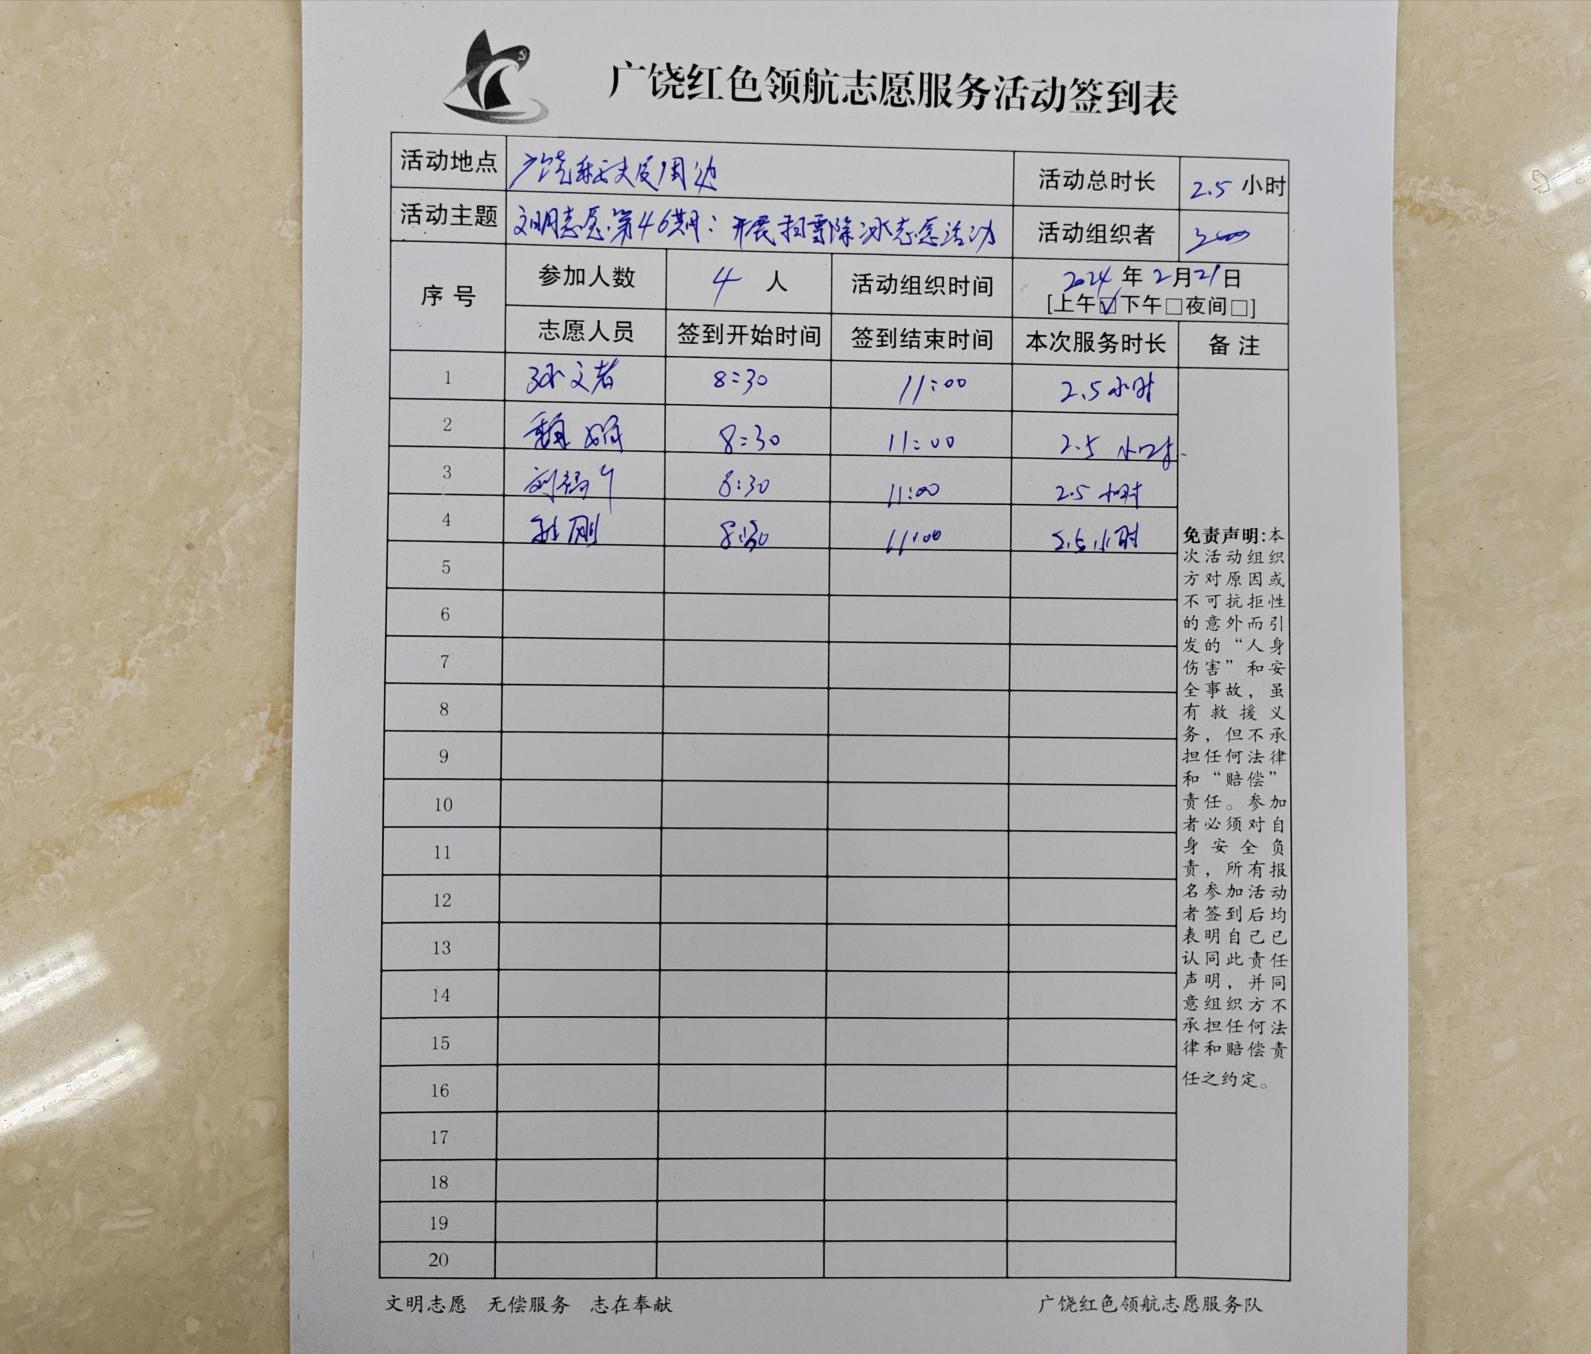 广饶红色领航志愿服务活动签到表
活动地点 广饶 及周边 活动总时长 2.5 小时
活动主题 文明志愿·第46期：开展扫雪除冰志愿活动 活动组织者
序号 参加人数 4 人 活动组织时间 2024 年 2 月 21 日
[上午☑下午□夜间□]
志愿人员 签到开始时间 签到结束时间 本次服务时长 备注
1 文君 8:30 11:00 2.5小时
2 魏娟 8:30 11:00 2.5 小时
3 刘 8:30 11:00 2.5 小时
4 刚 8:30 11:00 2.5小时
5
6
7
8
9
10
11
12
13
14
15
16
17
18
19
20
免责声明:本
次活动组织
方对原因或
不可抗拒性
的意外而引
发的“人身
伤害”和安
全事故，虽
有救援义
务，但不承
担任何法律
和“赔偿”
责任。参加
者必须对自
身安全负
责，所有报
名参加活动
者签到后均
表明自己已
认同此责任
声明，并同
意组织方不
承担任何法
律和赔偿责
任之约定。
文明志愿 无偿服务 志在奉献 广饶红色领航志愿服务队